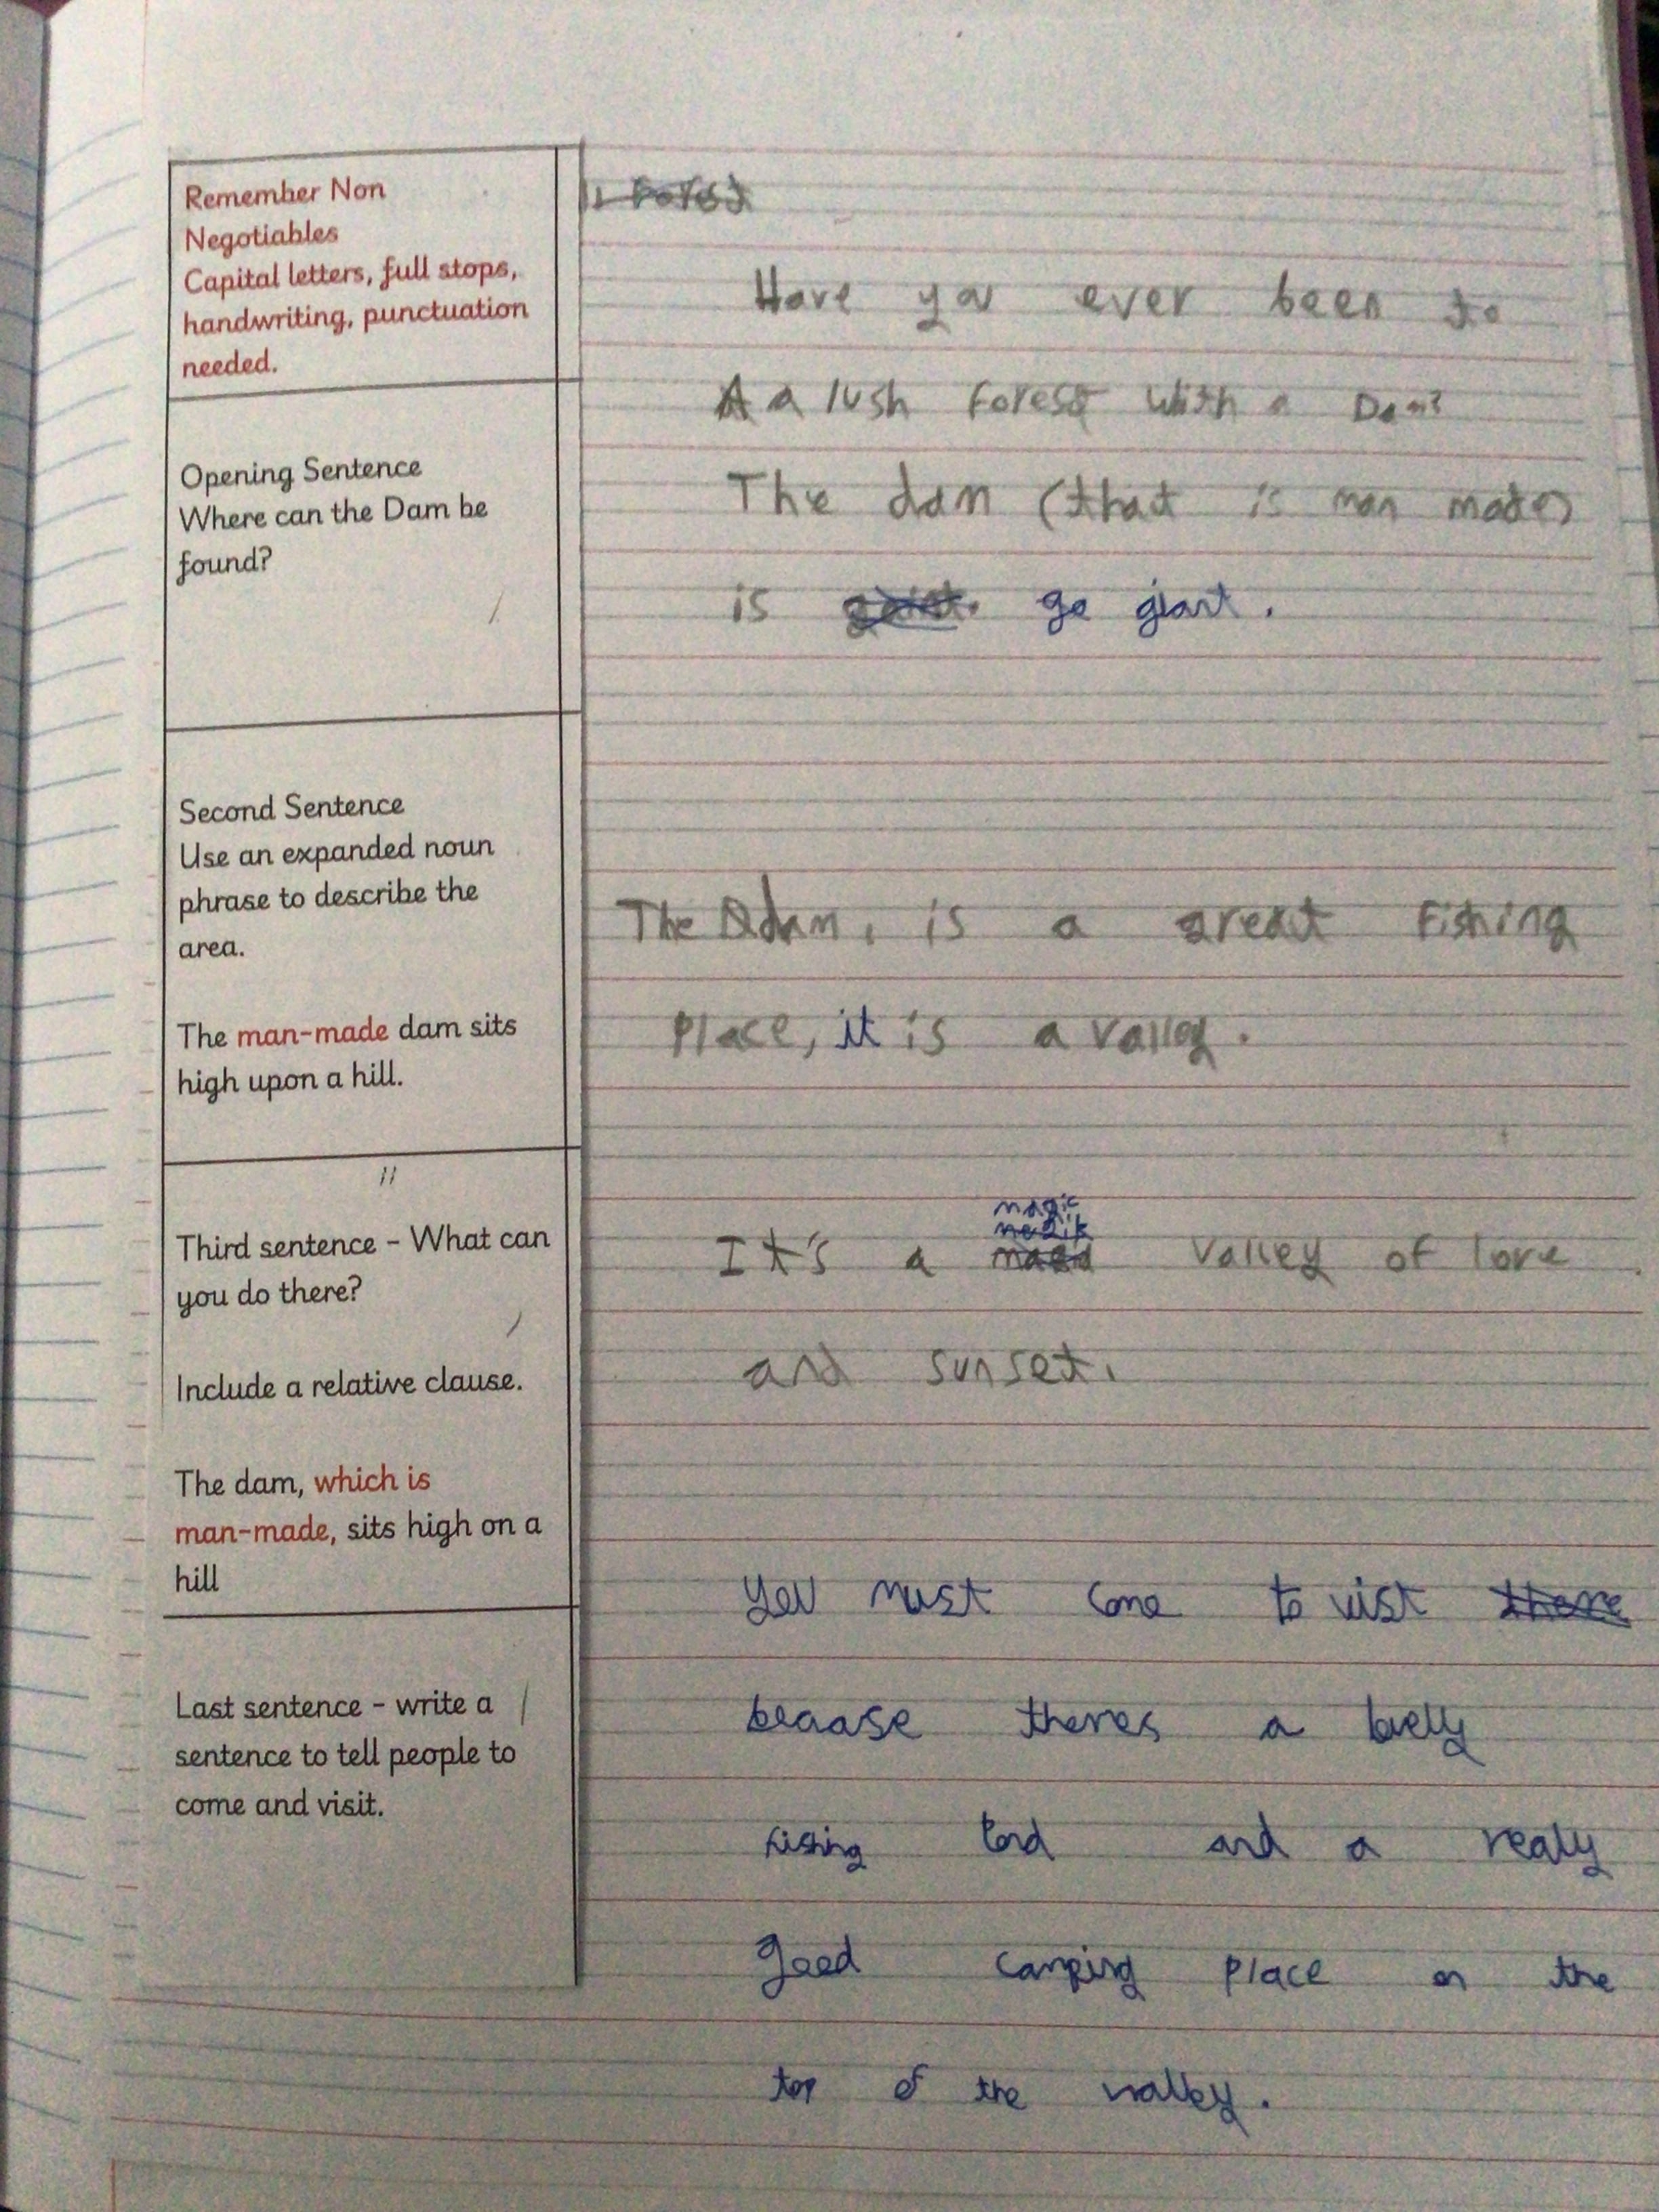 Remember Non
Negotiables
Capital letters, full stops,
handwriting, punctuation
needed.
Opening Sentence
Where can the Dam be
found?
Second Sentence
Use an expanded noun
phrase to describe the
area.
The man-made dam sits
high upon a hill.
Third sentence - What can
you do there?
Include a relative clause.
The dam, which is
man-made, sits high on a
hill
Last sentence - write a
sentence to tell people to
come and visit.
Have you ever been to
a lush forest with a Dam?
The dam (that is man made)
is go giant.
The dam, is a great fishing
Place, it is a valley.
magic
It's a valley of love
and sunset.
You must come to vist
because theres a lovely
fishing and a realy
good camping Place on the
top of the valley.